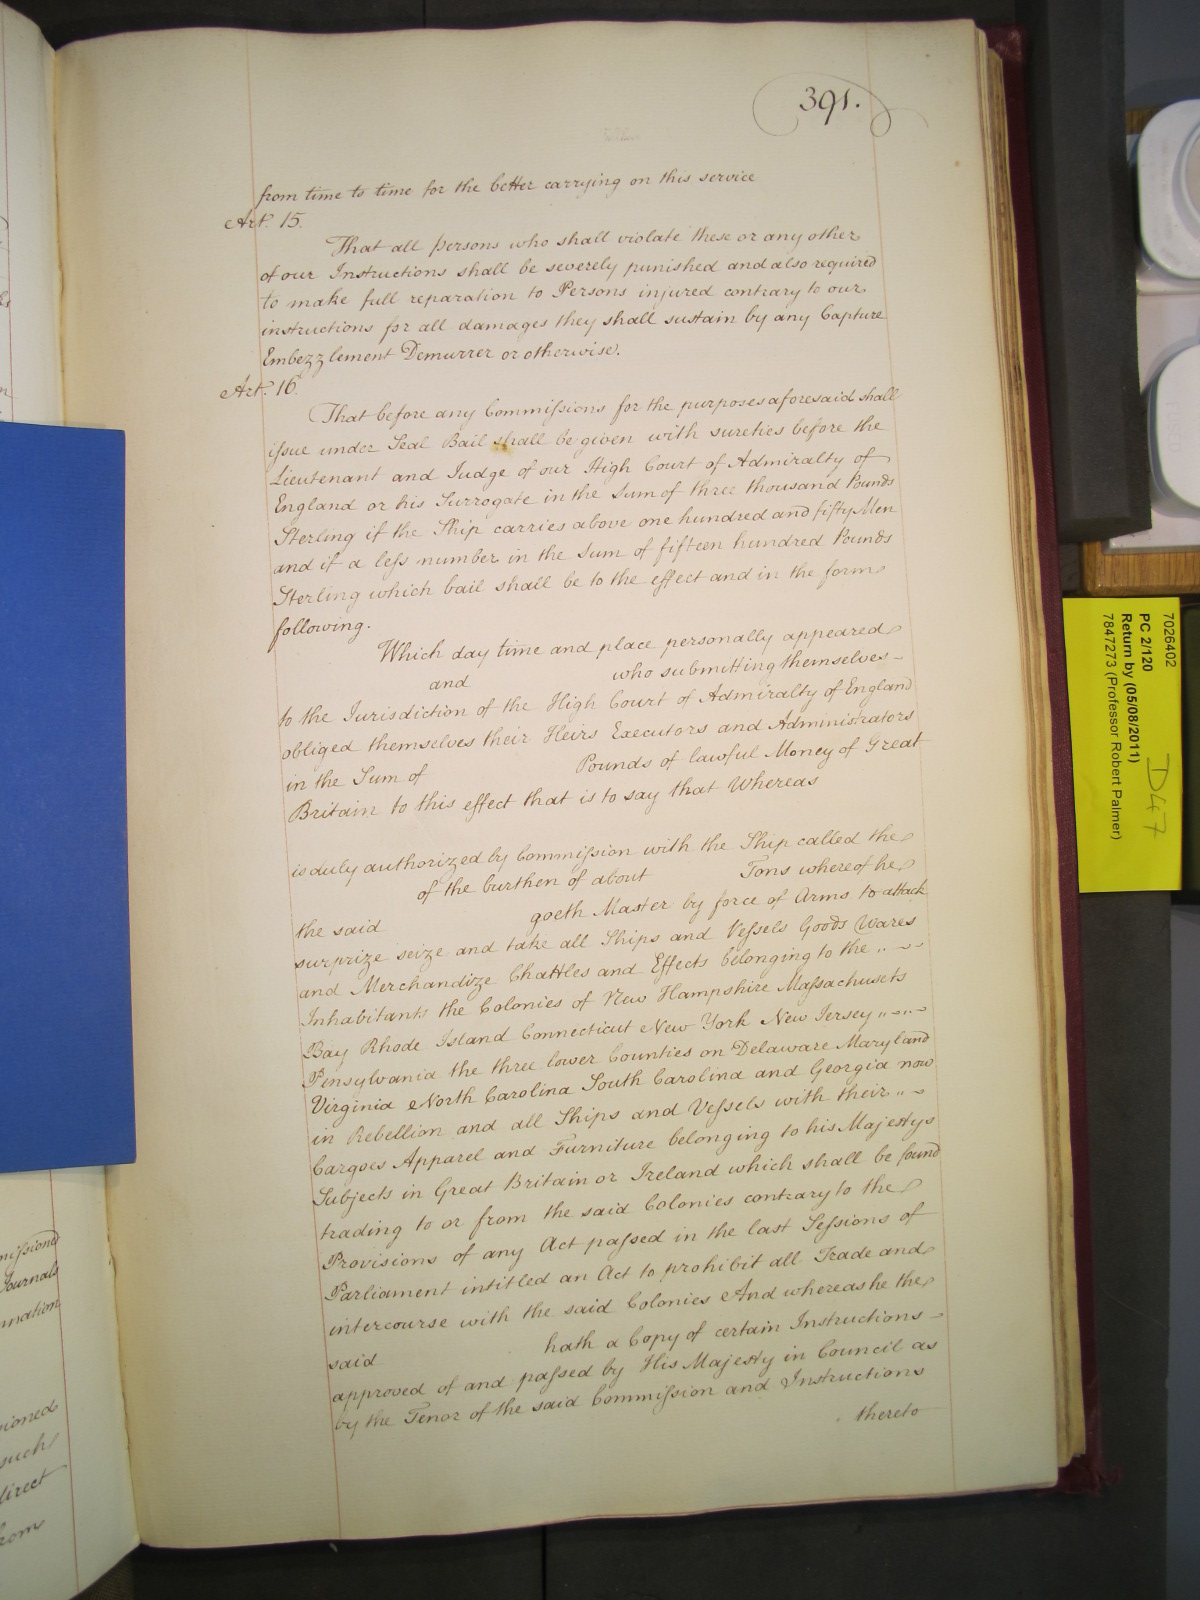 391.
from time to time for the better carrying on this service
Art. 15.
That all persons who shall violate these or any other
of our Instructions shall be severely punished and also required
to make full reparation to Persons injured contrary to our
instructions for all damages they shall sustain by any Capture
Embezzlement Demurrer or otherwise.
Art. 16.
That before any Commissions for the purposes aforesaid shall
issue under Seal Bail shall be given with sureties before the
Lieutenant and Judge of our High Court of Admiralty of
England or his Surrogate in the Sum of three thousand Pounds
Sterling if the Ship carries above one hundred and fifty Men
and if a less number in the Sum of fifteen hundred Pounds
Sterling which bail shall be to the effect and in the form
following.
Which day time and place personally appeared
and who submitting themselves -
to the Jurisdiction of the High Court of Admiralty of England
obliged themselves their Heirs Executors and Administrators
in the Sum of Pounds of lawful Money of Great
Britain to this effect that is to say that Whereas
is duly authorized by Commission with the Ship called the
of the burthen of about Tons whereof he
the said goeth Master by force of Arms to attack
surprize seize and take all Ships and Vessels Goods Wares
and Merchandize Chattles and Effects belonging to the
Inhabitants the Colonies of New Hampshire Massachusets
Bay Rhode Island Connecticut New York New Jersey
Pensylvania the three lower Counties on Delaware Maryland
Virginia North Carolina South Carolina and Georgia now
in Rebellion and all Ships and Vessels with their
Cargoes Apparel and Furniture belonging to his Majestys
Subjects in Great Britain or Ireland which shall be found
trading to or from the said Colonies contrary to the
Provisions of any Act passed in the last Sessions of
Parliament intitled an Act to prohibit all Trade and
intercourse with the said Colonies And whereas he the
said hath a Copy of certain Instructions -
approved of and passed by His Majesty in Council as
by the Tenor of the said Commission and Instructions
thereto
7026402
PC 2/120
Return by (05/08/2011)
7847273 (Professor Robert Palmer)
D47
missioned
Journals
mation
sioned
such
direct
from